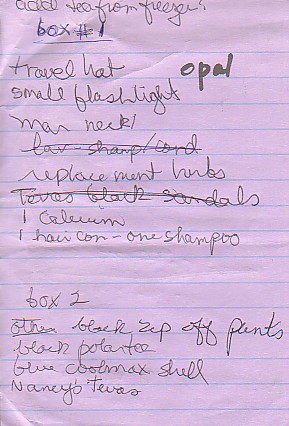 add tea from freezer?
box #1
travel hat opal
small flashlight
man neck/
lav-shamp/cond
replacement herbs
Tevas black sandals
1 Calcium
1 hair con-one shampoo
box 2
other black zip off pants
black polartec
blue coolmax shell
Nancy's Tevas